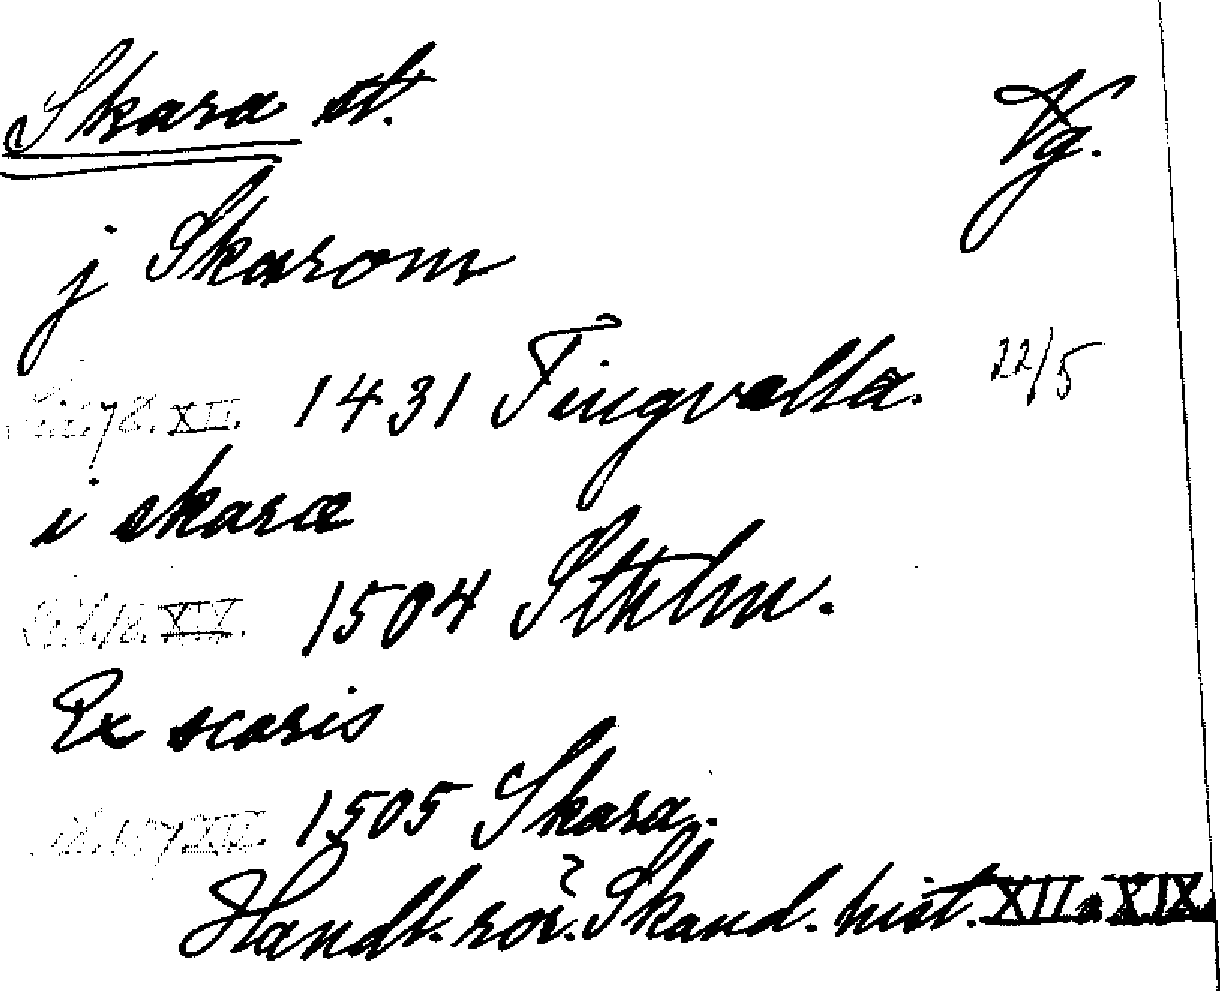 Skara st. Vg.
j Skarom
XII. 1431 Tingvalla. 22/5
i skaræ
XIV. 1504 Sthlm.
Ex scaris
1505 Skara.
Handl. rör. Skand. hist. XII o. XIX